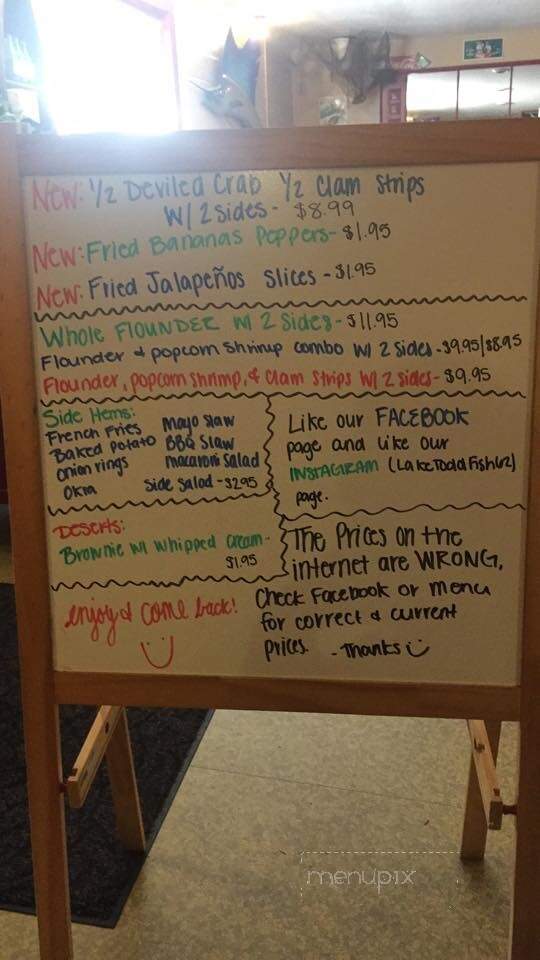 New: 1/2 Deviled Crab 1/2 Clam Strips
W/ 2 sides - $8.99
New: Fried Bananas Peppers - $1.95
New: Fried Jalapeños slices - $1.95
Whole FLOUNDER W/ 2 Sides - $11.95
Flounder & popcorn shrimp combo W/ 2 sides - $9.95/$8.95
Flounder, popcorn shrimp, & Clam Strips W/ 2 sides - $9.95
Side Items:
French Fries Mayo Slaw
Baked Potato BBQ Slaw
Onion rings macaroni Salad
Okra Side Salad - $2.95
Like our FACEBOOK
page and like our
INSTAGRAM (LakeToddFish62)
page.
Deserts:
Brownie W/ whipped cream -
$1.95
The Prices on the
internet are WRONG,
Check Facebook or menu
for correct & current
prices. - Thanks
enjoy & come back!
menupix